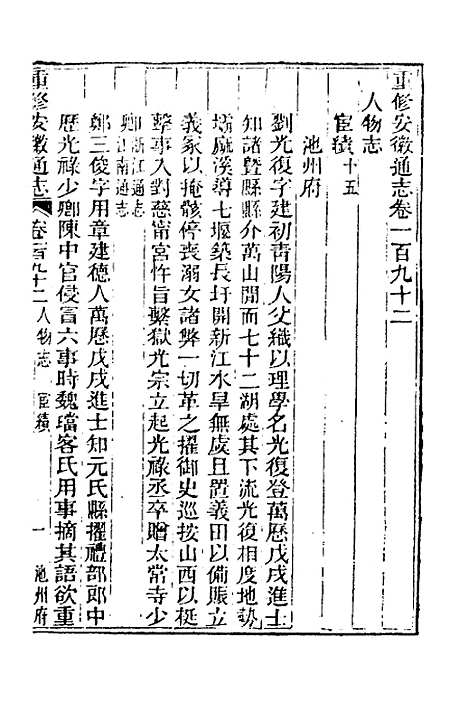 重修安徽通志卷一百九十二
人物志
宦績十五
池州府
劉光復字建初靑陽人父織以理學名光復登萬厯戊戌進士
知諸暨縣縣介萬山閒而七十二湖處其下流光復相度地勢
壩麻溪導七堰築長圩開新江水旱無虞且置義田以備賑立
義冢以掩骸停喪溺女諸弊一切革之擢御史巡按山西以梃
擊事入對慈甯宮忤旨繫獄光宗立起光祿丞卒贈太常寺少
卿浙江通志
江南通志
鄭三俊字用章建德人萬厯戊戌進士知元氏縣擢禮部郎中
歷光祿少卿陳中官侵冒六事時魏璫客氏用事摘其語欲重
重修安徽通志 卷百九十二 人物志 宦績 一 池州府